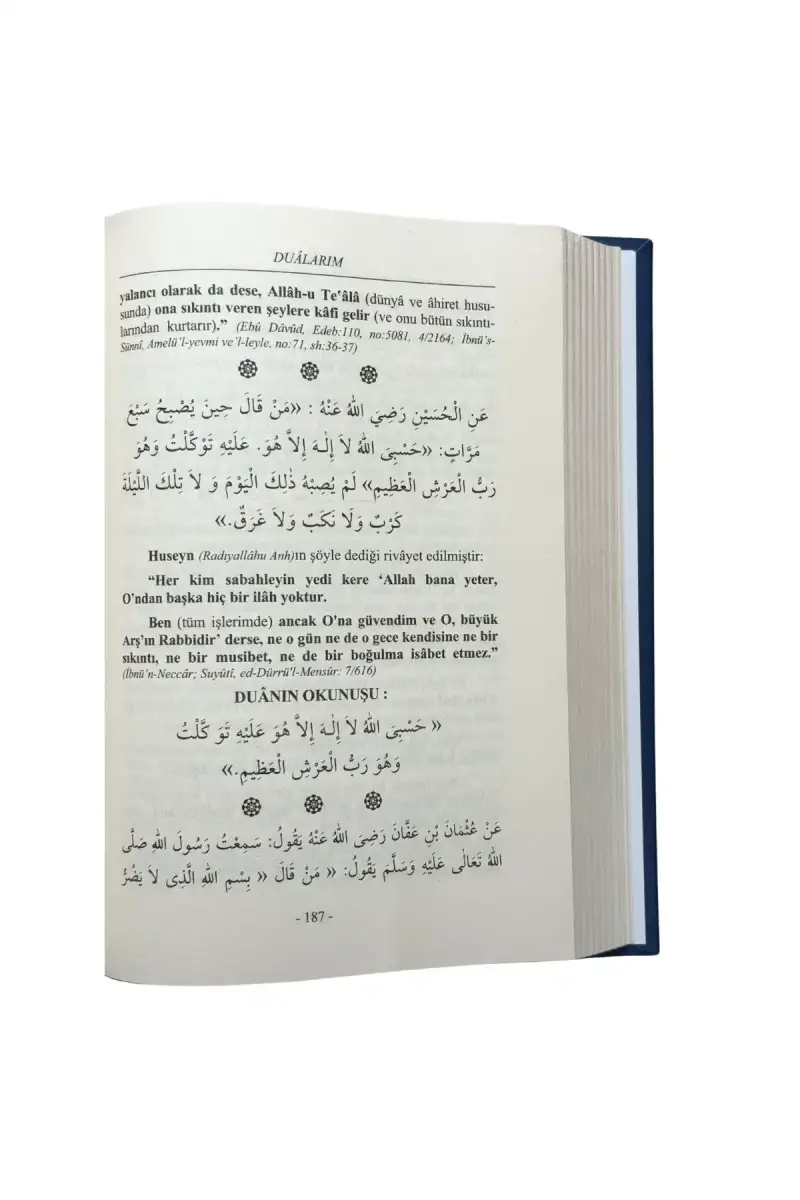 DUÂLARIM
yalancı olarak da dese, Allâh-u Te‘âlâ (dünyâ ve âhiret husu-
sunda) ona sıkıntı veren şeylere kâfi gelir (ve onu bütün sıkıntı-
larından kurtarır).” (Ebû Dâvûd, Edeb:110, no:5081, 4/2164; İbnü's-
Sünnî, Amelü'l-yevmi ve'l-leyle, no:71, sh:36-37)
عَنِ الْحُسَيْنِ رَضِيَ اللهُ عَنْهُ : «مَنْ قَالَ حِينَ يُصْبِحُ سَبْعَ
مَرَّاتٍ: «حَسْبِيَ اللهُ لاَ إِلٰـهَ إِلاَّ هُوَ. عَلَيْهِ تَوَكَّلْتُ وَهُوَ
رَبُّ الْعَرْشِ الْعَظِيمِ» لَمْ يُصِبْهُ ذٰلِكَ الْيَوْمَ وَ لاَ تِلْكَ اللَّيْلَةَ
كَرْبٌ وَلَا نَكَبٌ وَلاَ غَرَقٌ.»
Huseyn (Radıyallâhu Anh)ın şöyle dediği rivâyet edilmiştir:
“Her kim sabahleyin yedi kere ‘Allah bana yeter,
O'ndan başka hiç bir ilâh yoktur.
Ben (tüm işlerimde) ancak O'na güvendim ve O, büyük
Arş'ın Rabbidir’ derse, ne o gün ne de o gece kendisine ne bir
sıkıntı, ne bir musibet, ne de bir boğulma isâbet etmez.”
(İbnü'n-Neccâr; Suyûtî, ed-Dürrü'l-Mensûr: 7/616)
DUÂNIN OKUNUŞU :
« حَسْبِيَ اللهُ لاَ إِلٰـهَ إِلاَّ هُوَ عَلَيْهِ تَوَ كَّلْتُ
وَهُوَ رَبُّ الْعَرْشِ الْعَظِيمِ.»
عَنْ عُثْمَانَ بْنِ عَفَّانَ رَضِىَ اللهُ عَنْهُ يَقُولُ: سَمِعْتُ رَسُولَ اللهِ صَلَّى
اللهُ تَعَالٰى عَلَيْهِ وَسَلَّمَ يَقُولُ: « مَنْ قَالَ « بِسْمِ اللهِ الَّذِى لاَ يَضُرُّ
- 187 -